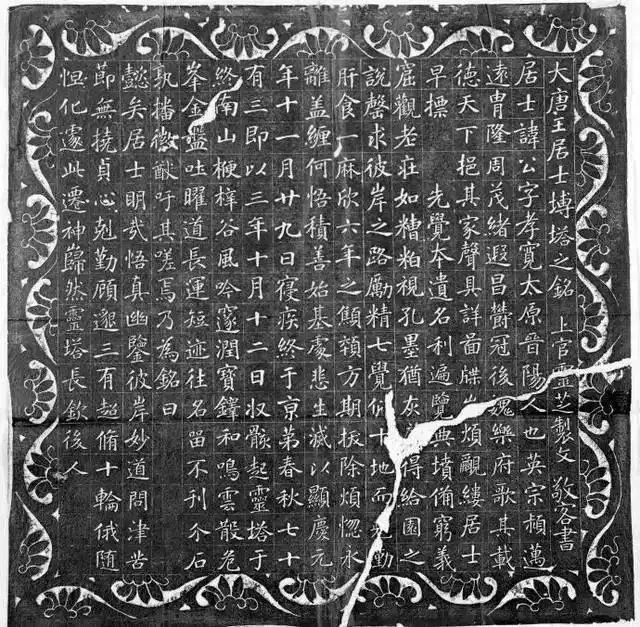 大唐王居士塼塔之銘 上官靈芝製文 敬客書
居士諱公字孝寬太原晉陽人也英宗頡邁
遠冑隆周茂緒遐昌欝冠後魏樂府歌其載
德天下挹其家聲具詳啚牒煩覼縷居士
早標 先覺夲遺名利遍覽典墳備窮義
窟觀老莊如糟粕視孔墨猶灰得給園之
說罄求彼岸之路勵精七覺仰十地而克勤
肝食一麻欣六年之顦顇方期拔除煩惱永
離盖纏何悟積善始基處悲生滅以顯慶元
年十一月廿九日寑疾終于京第春秋七十
有三即以三年十月十二日収骸起靈塔于
終南山楩梓谷風吟邃澗寶鐸和鳴雲散危
峯金盤吐曜道長運短迹往名畱不刊介石
孰播徽猷吁其嗟焉乃為銘曰
懿矣居士明哉悟真幽鑒彼岸妙道問津苦
莭無撓貞心剋勤顧邈三有超脩十輪俄隨
怛化遽此遷神巋然靈塔長欽後人